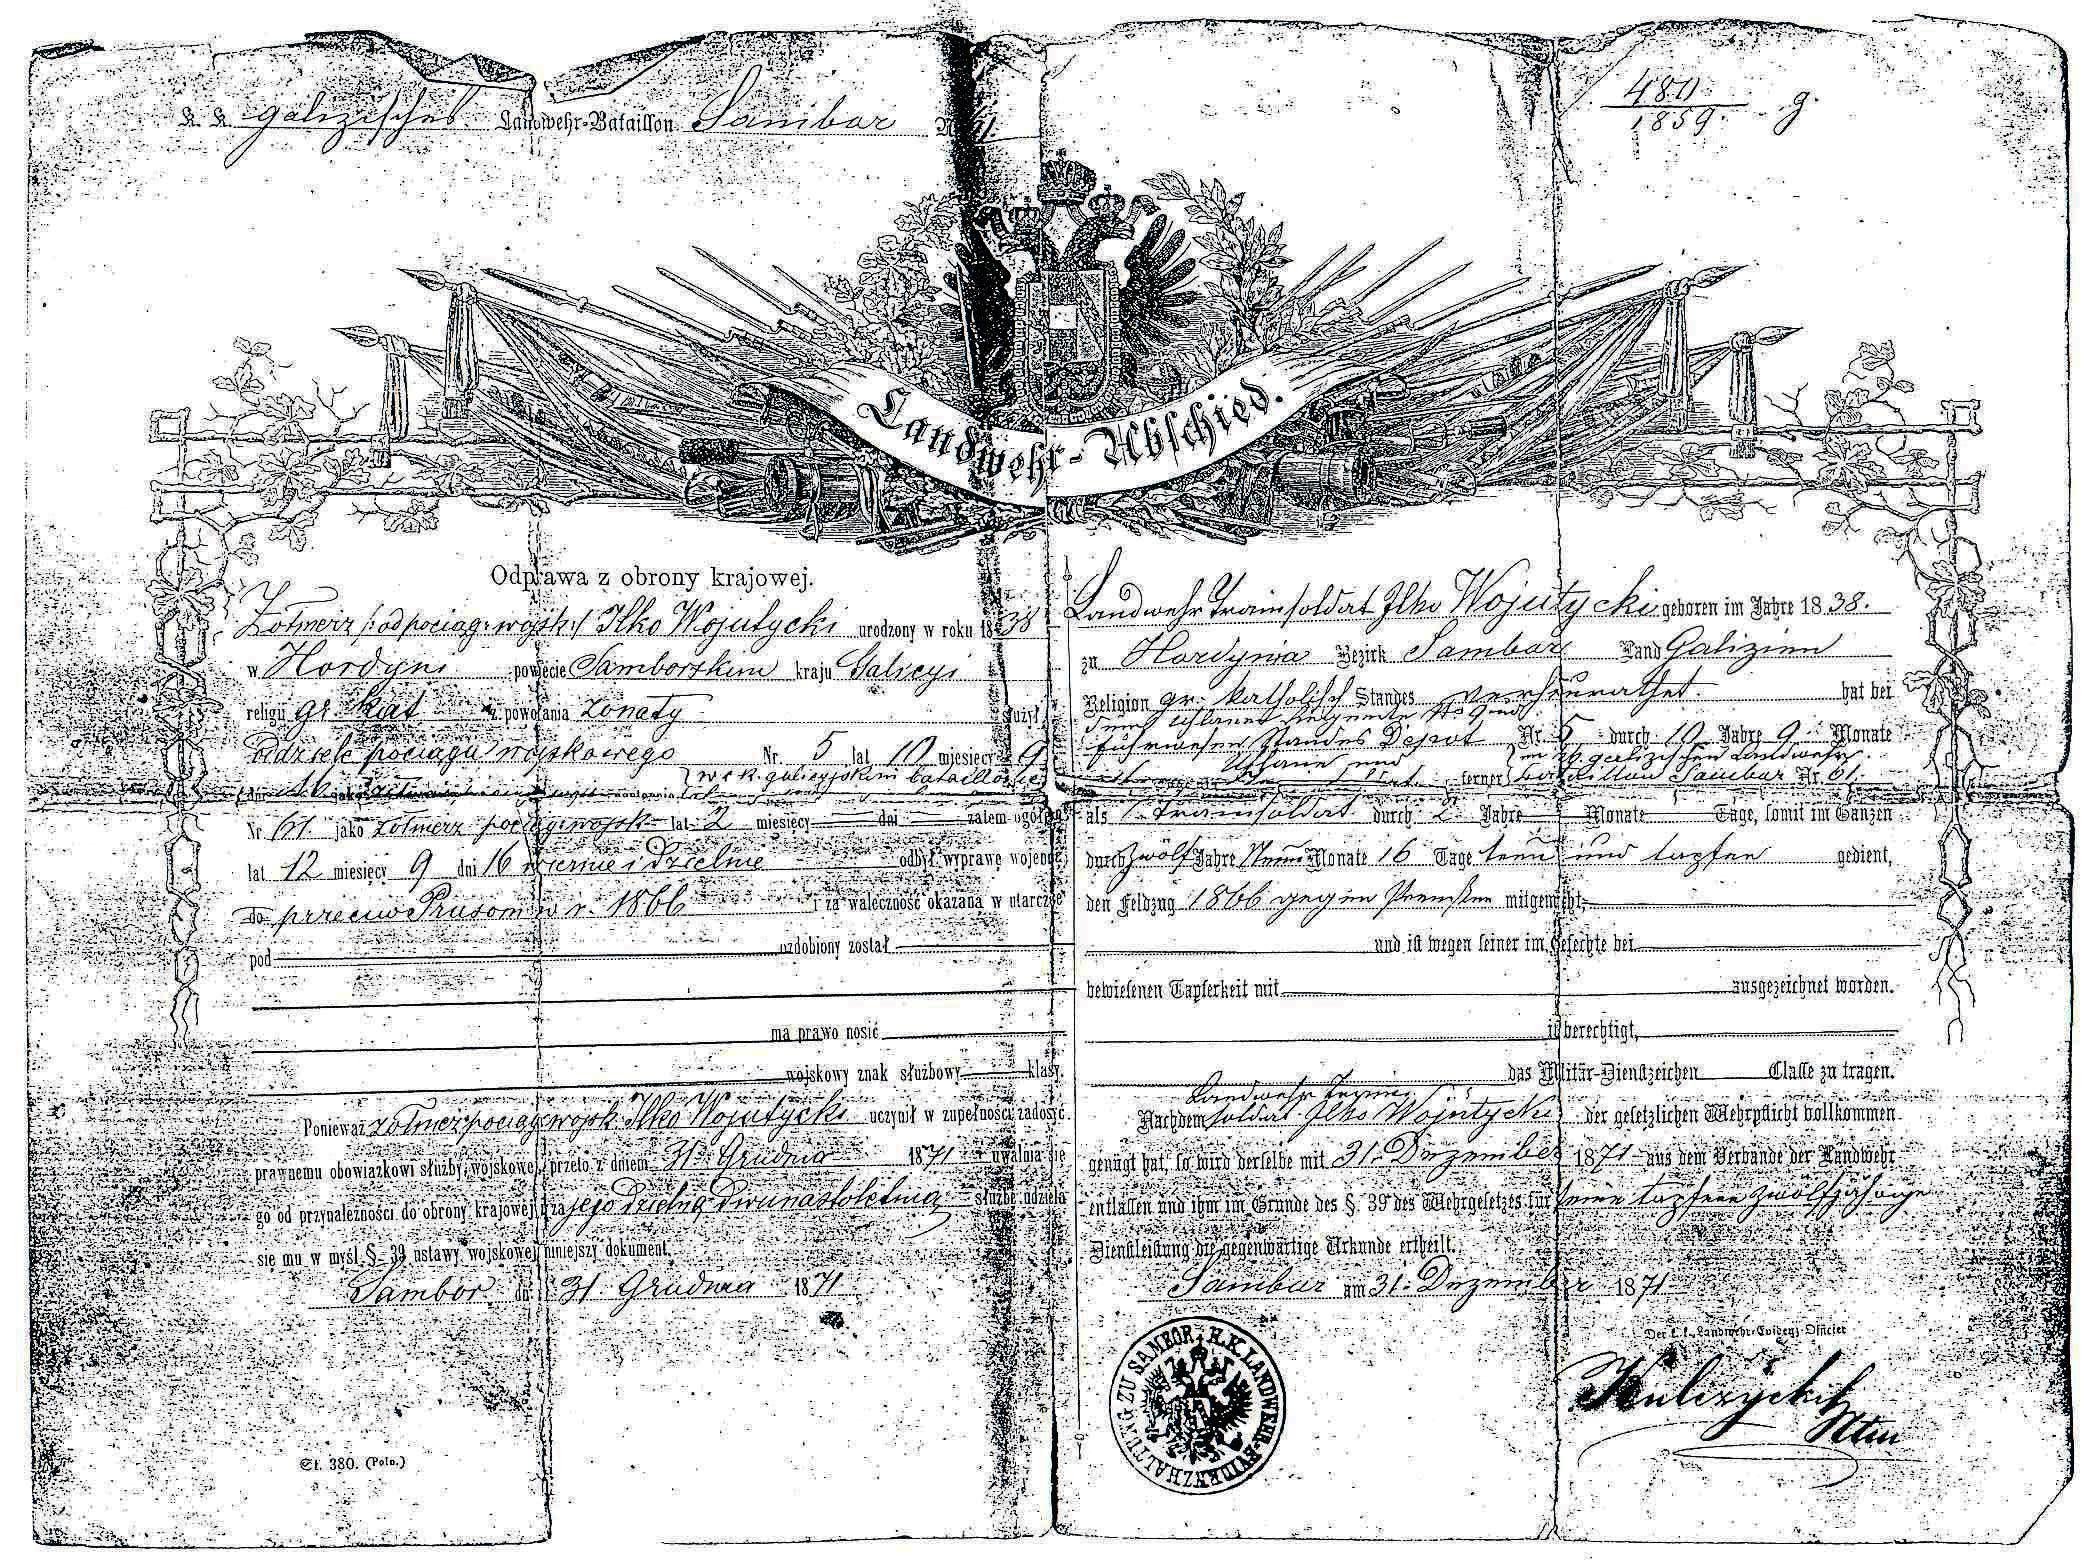 K. k. galizisches Landwehr-Bataillon Sambor Nr. 61.
480
1859. g.
Landwehr-Abschied.
Odprawa z obrony krajowej.
Żołnierz /: od pociąg: wojsk:/ Ilko Wojutycki urodzony w roku 1838
w Hordyni powiecie Samborskim kraju Galicyi
religii gr. kat z powołania żonaty służył
pociągu wojskowego Nr. 5 lat 10 miesięcy 9
w c. k. galicyjskim bataillonie
Nr. 61. jako żołnierz pociąg: wojsk: lat 2 miesięcy dni zatem ogółem
lat 12 miesięcy 9 dni 16 wiernie i dzielnie odbył wyprawę wojenną
do przeciw Prusom w r. 1866 i za waleczność okazaną w utarczce
pod ozdobiony został
ma prawo nosić
wojskowy znak służbowy klasy.
Ponieważ żołnierz pociąg: wojsk. Ilko Wojutycki uczynił w zupełności zadość
prawnemu obowiązkowi służby wojskowej, przeto z dniem 31. Grudnia 1871 uwalnia się
go od przynależności do obrony krajowej i za jego dzielną dwunastoletnią służbę udziela
się mu w myśl §. 39 ustawy wojskowej niniejszy dokument.
Sambor dn. 31. Grudnia 1871
St. 380. (Poln.)
Landwehr Trainsoldat Ilko Wojutycki geboren im Jahre 1838.
zu Hordynia Bezirk Sambor Land Galizien
Religion gr: katholisch Standes verheurathet. hat bei
dem Uhlanen Regimente
Fuhrwesen Standes Depot Nr. 5 durch 10 Jahre 9 Monate
Uhlane und ferner im k.k. galizischen Landwehr-
bataillon Sambor Nr. 61.
als Trainsoldat durch 2 Jahre Monate Tage, somit im Ganzen
durch zwölf Jahre Neun Monate 16 Tage treu und tapfer gedient,
den Feldzug 1866 gegen Preußen mitgemacht,
und ist wegen seiner im Gefechte bei
bewiesenen Tapferkeit mit ausgezeichnet worden.
ist berechtigt,
das Militär-Dienstzeichen Classe zu tragen.
Landwehr Train-
Nachdem soldat Ilko Wojutycki der gesetzlichen Wehrpflicht vollkommen
genügt hat, so wird derselbe mit 31. Dezember 1871 aus dem Verbande der Landwehr
entlassen und ihm im Grunde des §. 39 des Wehrgesetzes für seine tapfere zwölfjährige
Dienstleistung die gegenwärtige Urkunde ertheilt.
Sambor am 31. Dezember 1871
K.K. LANDWEHR-EVIDENZHALTUNG ZU SAMBOR
Der k. k. Landwehr-Evidenz-Officier
Kulczycki